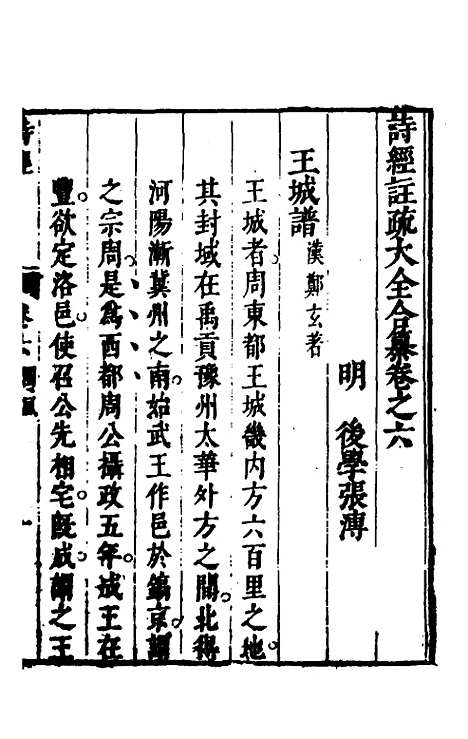 詩經註疏大全合纂卷之六
明 後學張溥
王城譜 漢鄭玄著
王城者周東都王城畿內方六百里之地。
其封域在禹貢豫州太華外方之間。北得
河陽漸冀州之南。始武王作邑於鎬京。謂
之宗周。是為西都周公攝政五年。成王在
豐。欲定洛邑。使召公先相宅。既成謂之王
詩經 卷六